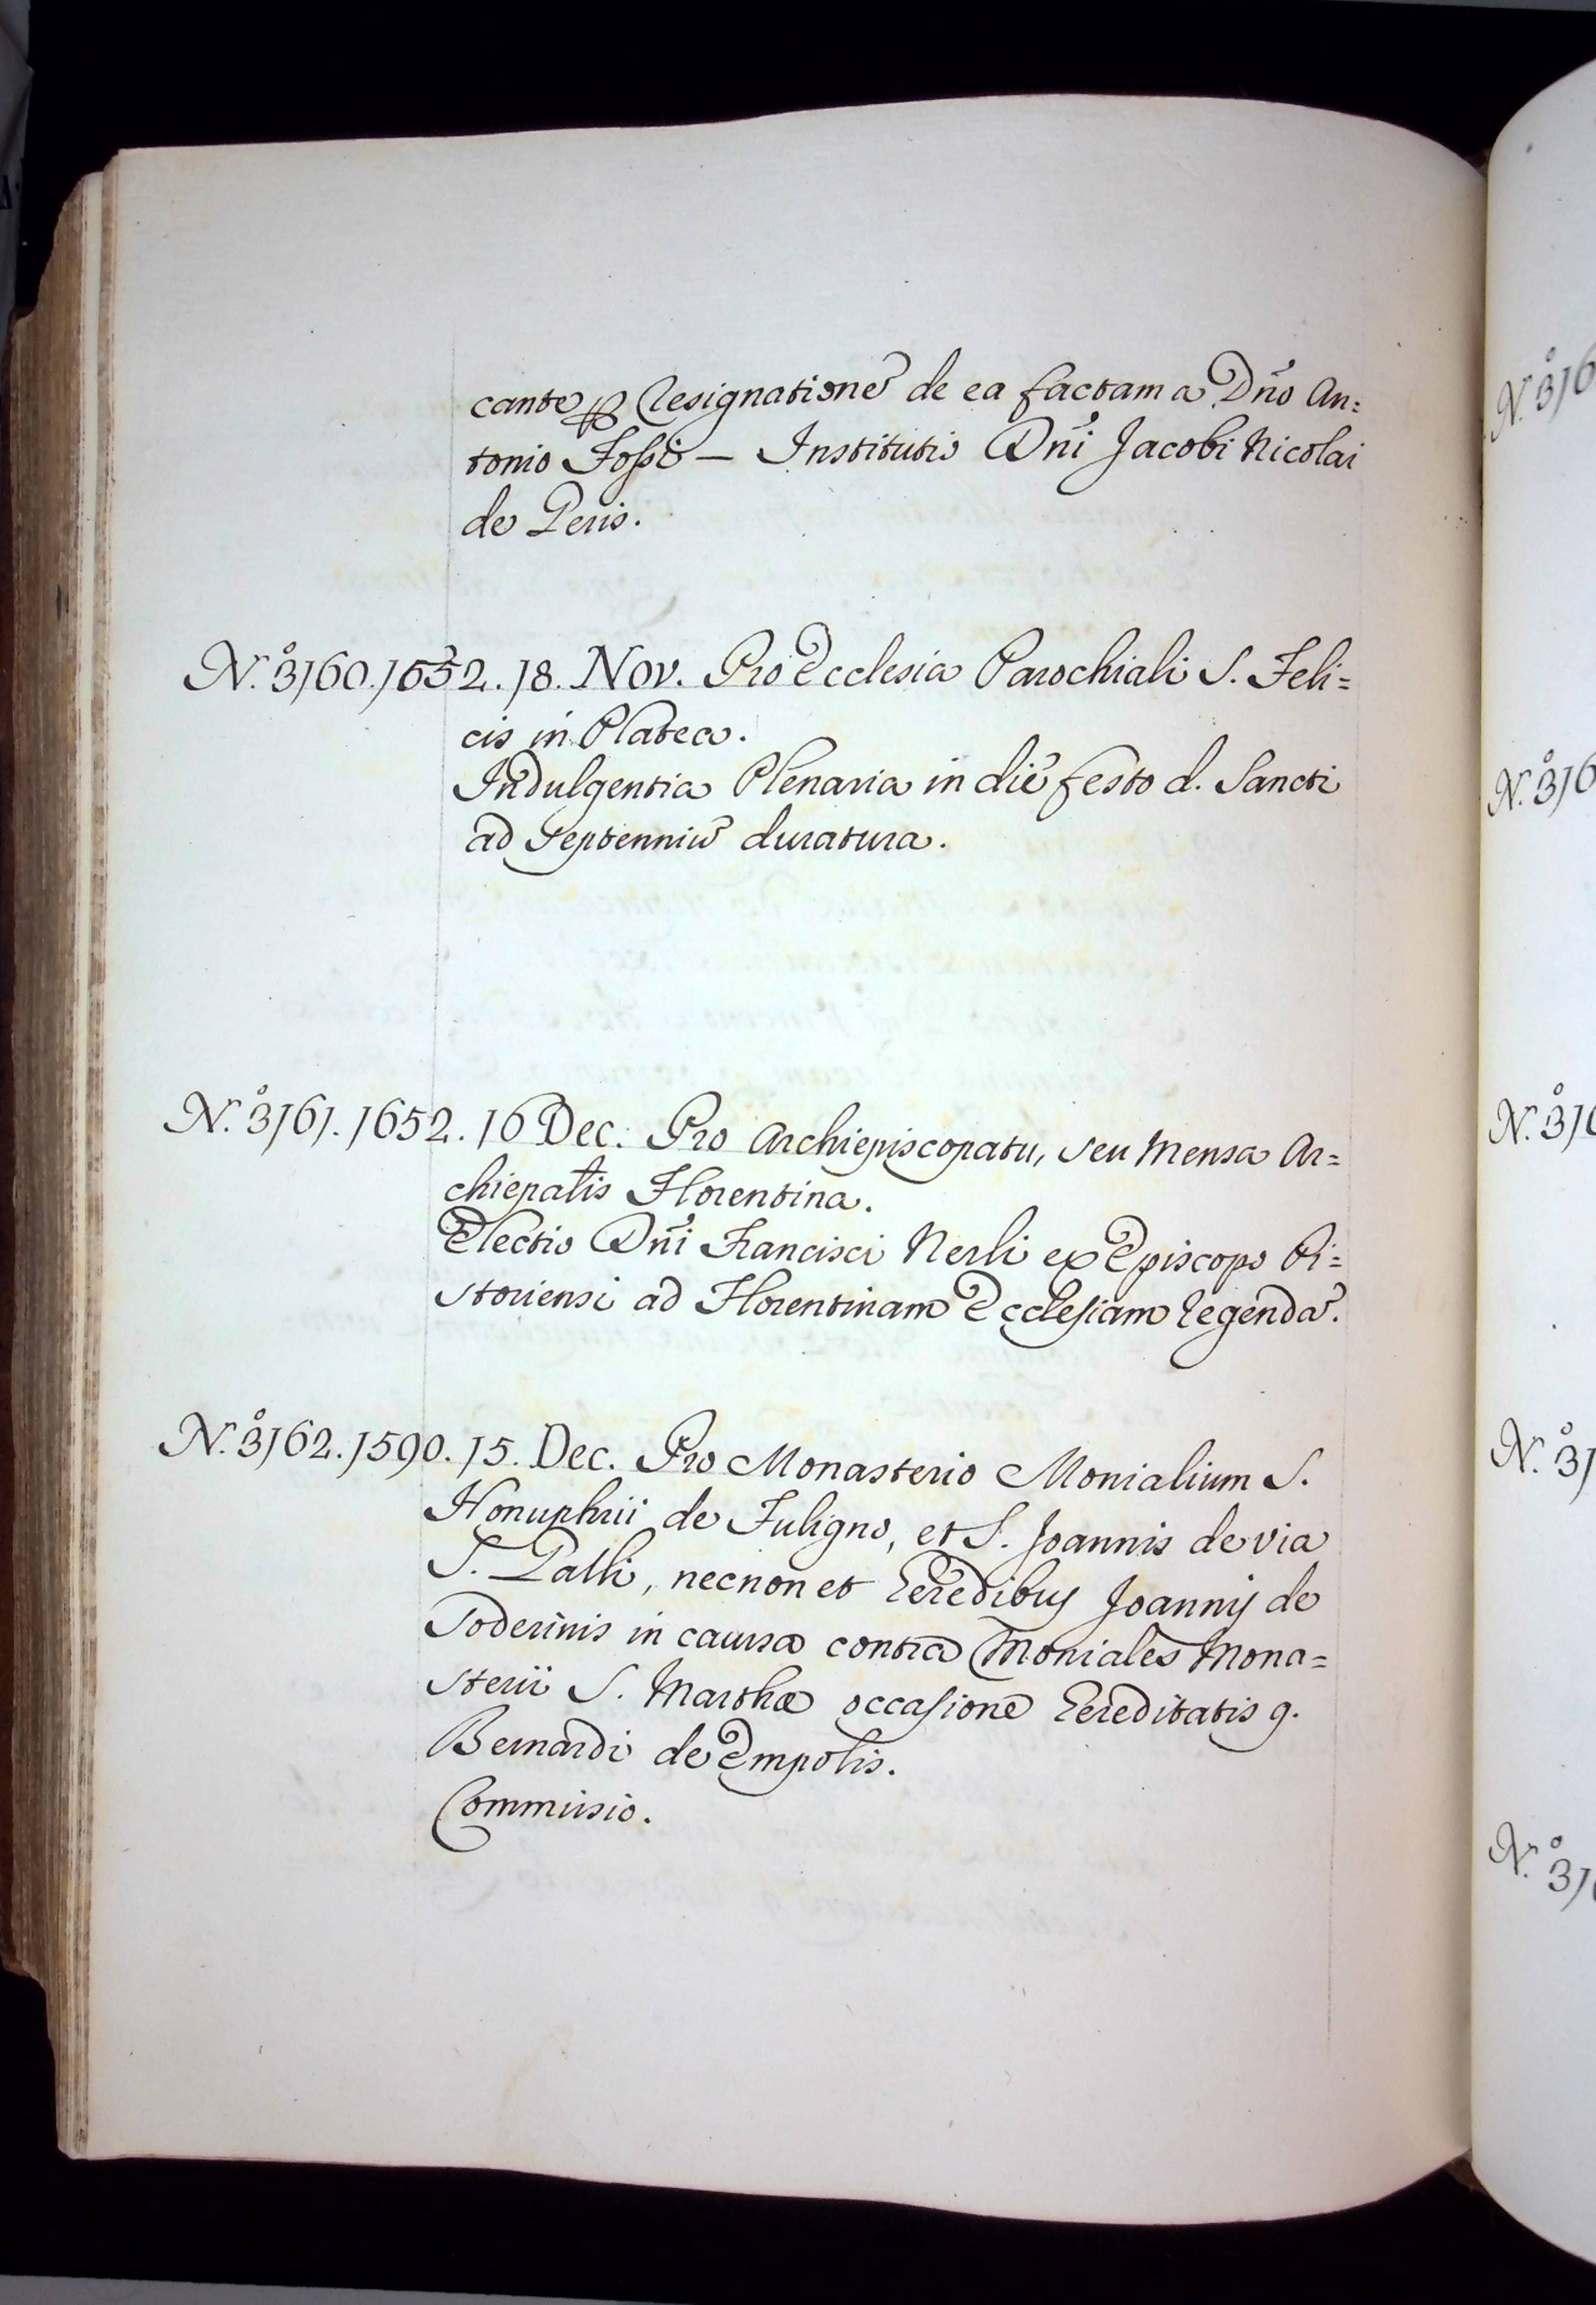 cante ꝑ Resignationẽ de ea factam a Dño An=
tonio Fossi — Institutio Dñi Jacobi Nicolai
de Peris.
N.º 3160. 1652. 18. Nov. Pro Ecclesia Parochiali S. Feli=
cis in Platea.
Indulgentia Plenaria in die festo d. Sancti
ad septenniũ duratura.
N.º 3161. 1652. 16 Dec. Pro Archiepiscopatu, seu Mensa Ar=
chiepalis Florentina.
Electio Dñi Francisci Nerli ex Episcopo Pi=
storiensi ad Florentinam Ecclesiam regendã.
N.º 3162. 1590. 15. Dec. Pro Monasterio Monialium S.
Honuphrii de Fuligno, et S. Joannis de via
S. Galli, necnon et Heredibus Joannis de
Poderinis in causa contra Moniales Mona=
sterii S. Marthæ occasione Hereditatis q.
Bernardi de Empolis.
Commissio.
N.º 316
N.º 316
N.º 316
N.º 31
N.º 31